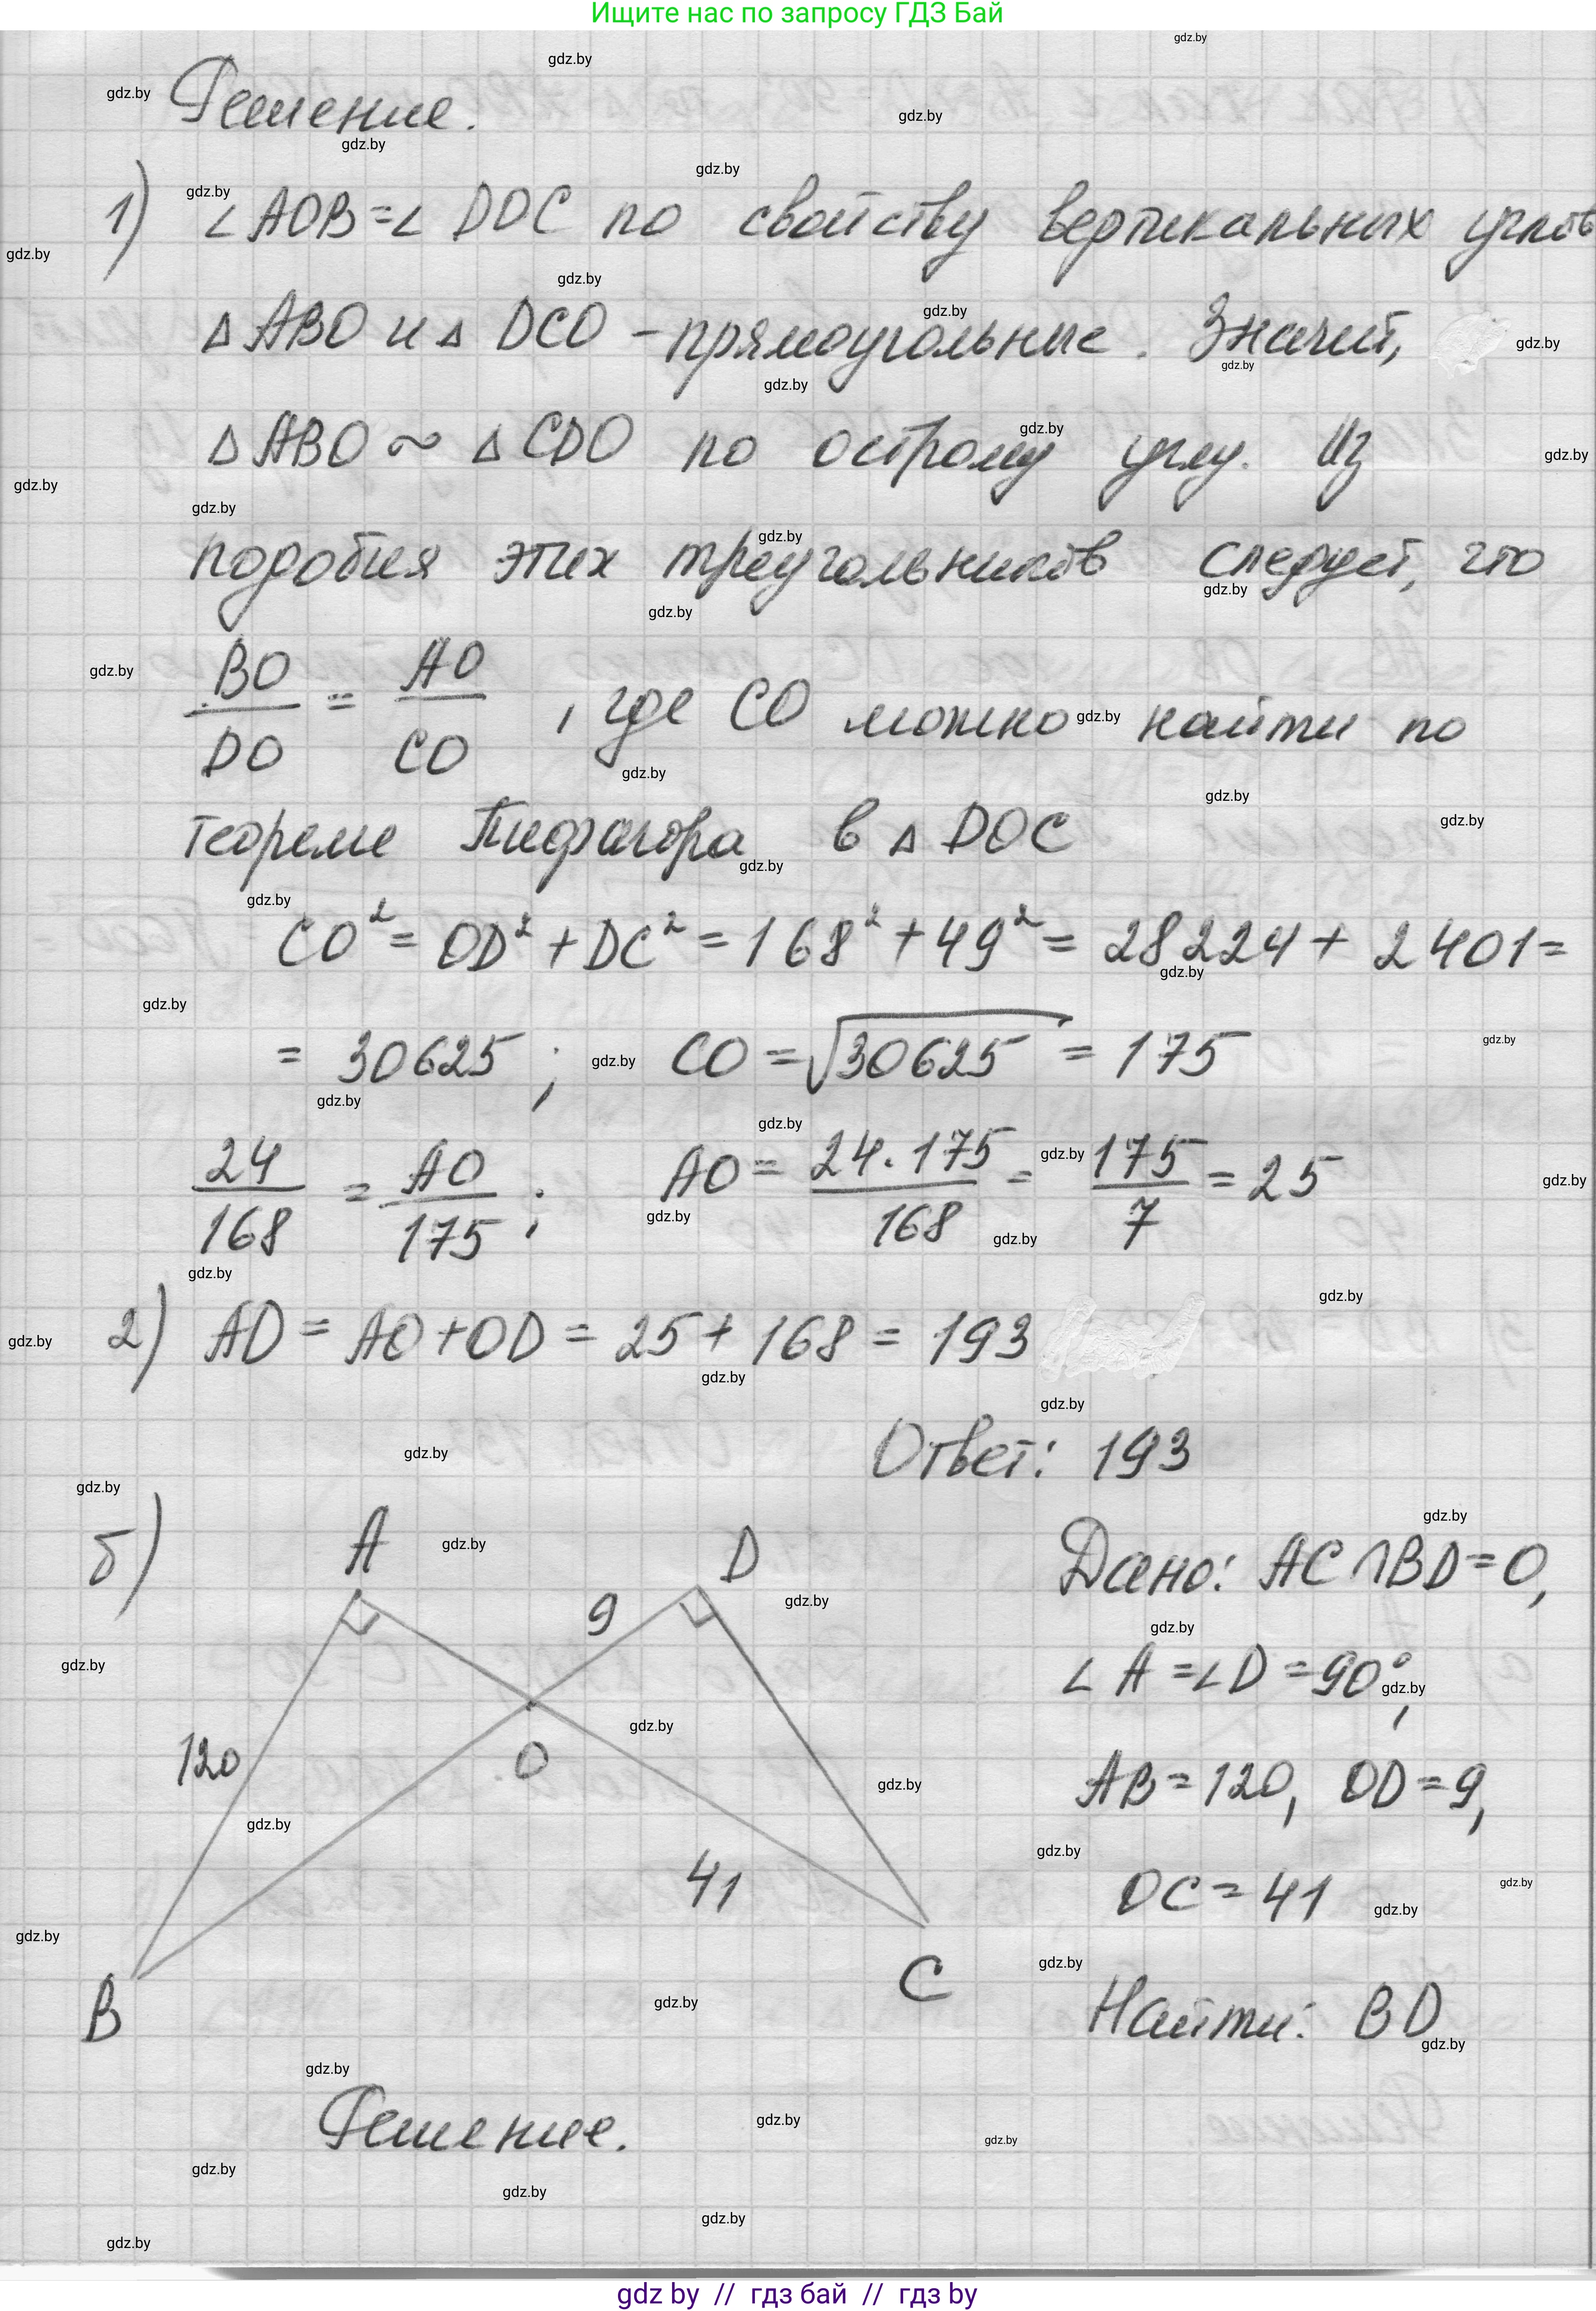 Ищите нас по запросу ГДЗ Бай
Решение.
1) ∠AOB = ∠DOC по свойству вертикальных углов
△ABO и △DCO - прямоугольные. Значит,
△ABO ~ △CDO по острому углу. Из
подобия этих треугольников следует, что
BO/DO = AO/CO, где CO можно найти по
теореме Пифагора в △DOC
CO² = OD² + DC² = 168² + 49² = 28224 + 2401 =
= 30625; CO = √30625 = 175
24/168 = AO/175; AO = 24·175/168 = 175/7 = 25
2) AD = AO + OD = 25 + 168 = 193
Ответ: 193
б)
A
D
9
120
O
41
B
C
Дано: AC ∩ BD = O,
∠A = ∠D = 90°,
AB = 120, OD = 9,
OC = 41
Найти: BD
Решение.
gdz by // гдз бай // гдз by